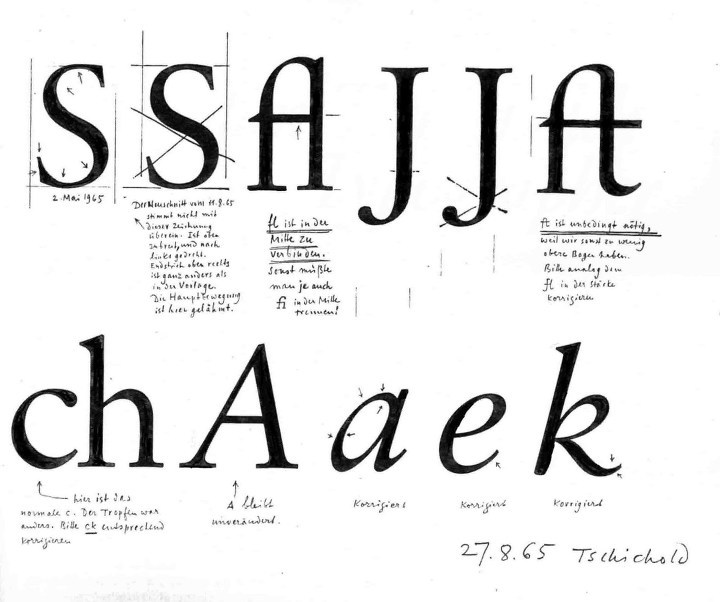 S S fl J J ft
2. Mai 1965
Der Neuschnitt vom 11.8.65
stimmt nicht mit
dieser Zeichnung
überein. Ist oben
zu breit, und nach
links gedreht.
Endstrich oben rechts
ist ganz anders als
in der Vorlage.
Die Hauptbewegung
ist hier gelähmt.
fl ist in der
Mitte zu
verbinden.
Sonst müßte
man ja auch
fi in der Mitte
trennen!
ft ist unbedingt nötig,
weil wir sonst zu wenig
obere Bogen haben.
Bitte analog dem
fl in der Stärke
korrigieren
ch A a e k
hier ist das
normale c. Der Tropfen war
anders. Bitte ck entsprechend
korrigieren
A bleibt
unverändert.
korrigiert
korrigiert
korrigiert
27.8.65 Tschichold